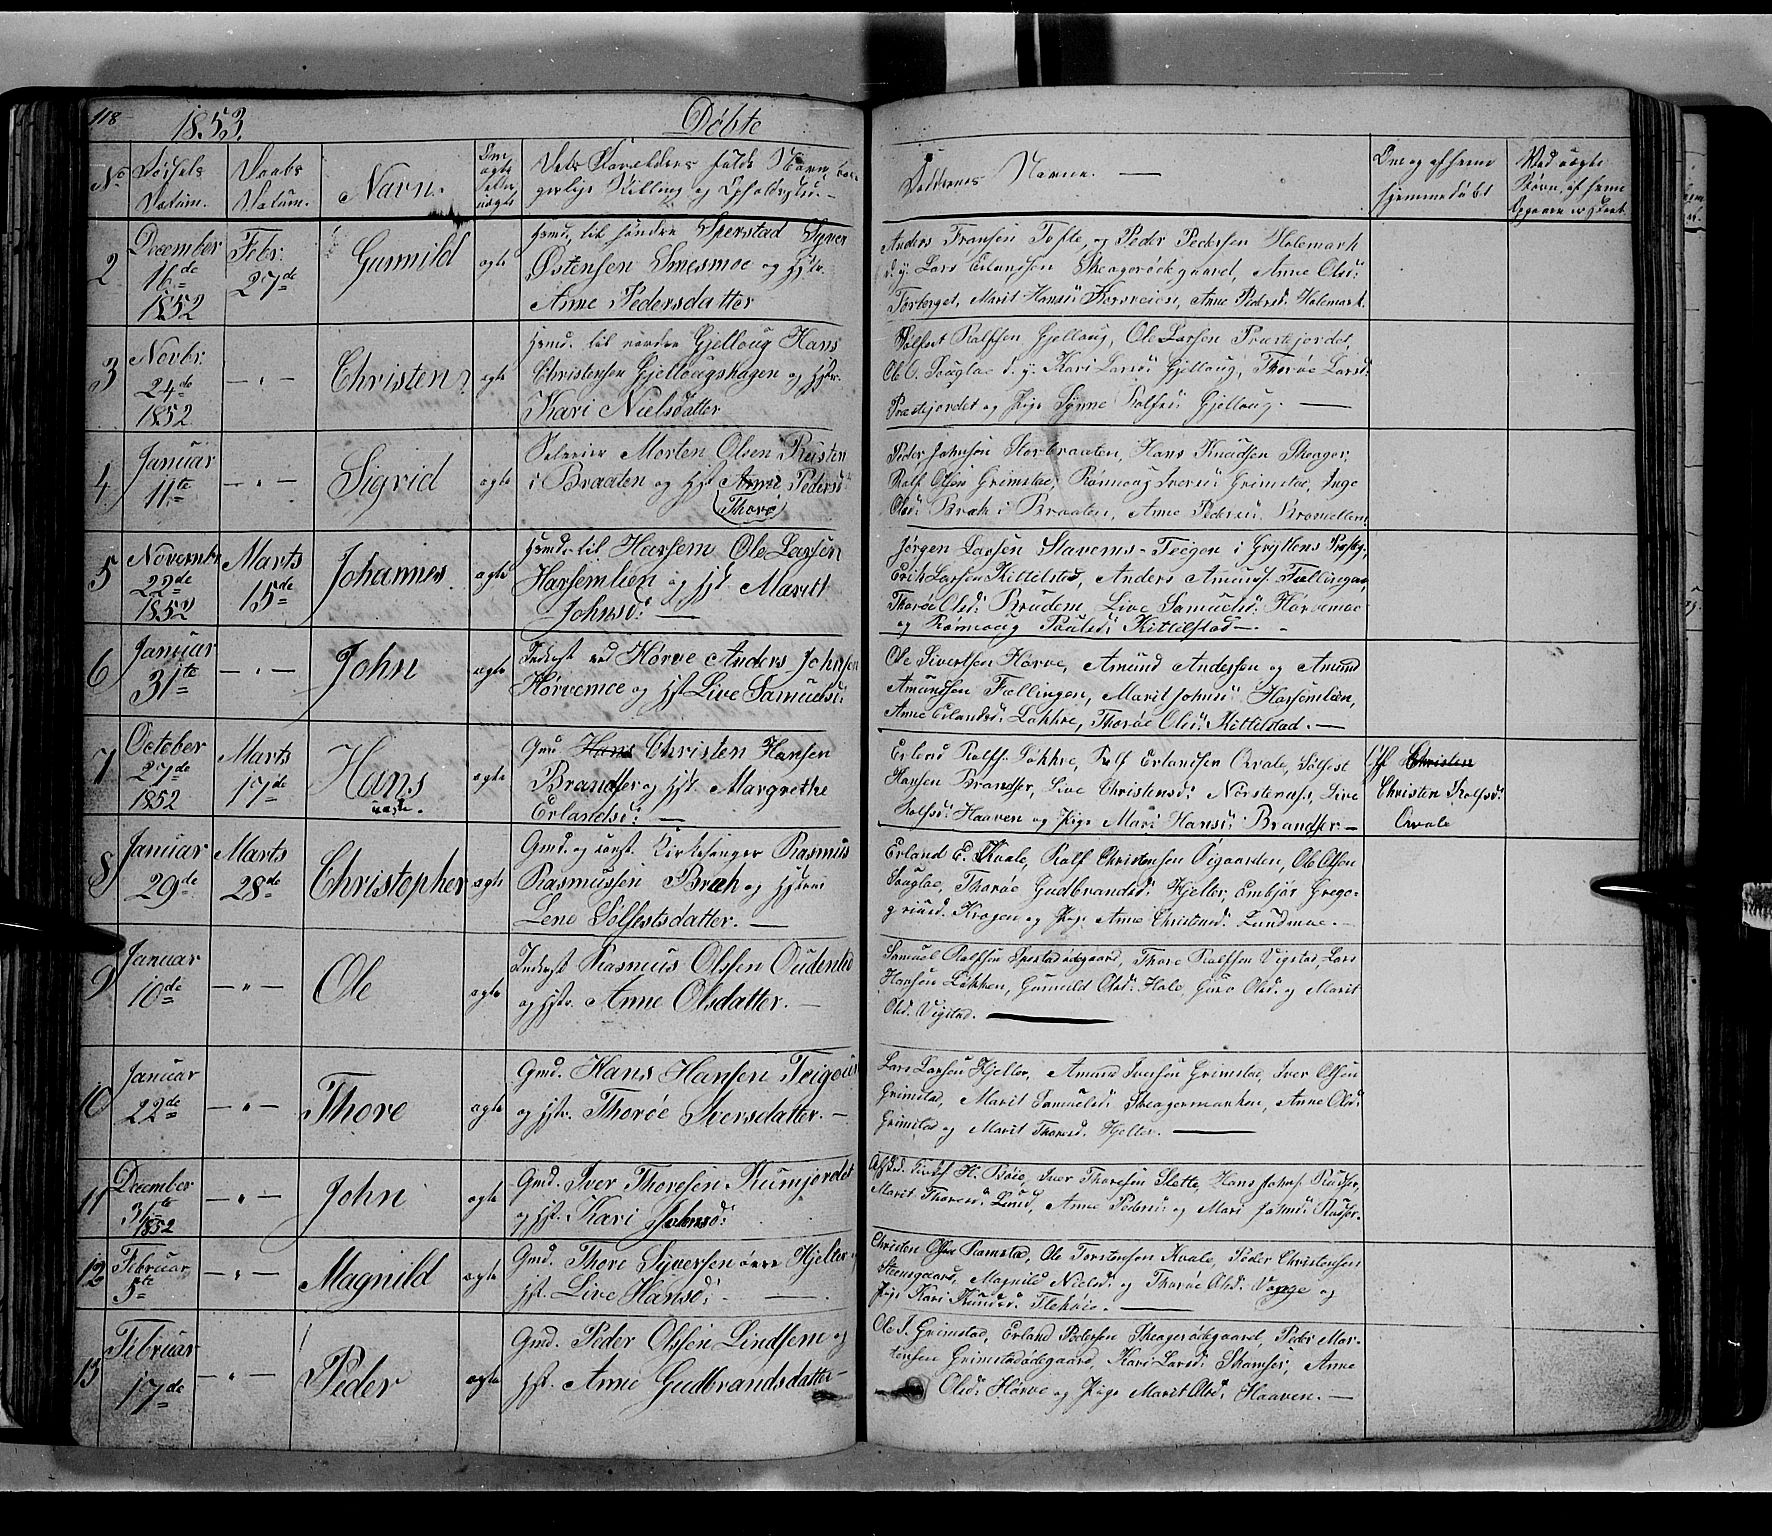 118
1853.
Døbte
No
Fødsels Datum.
Daabs Datum.
Navn.
Om ægte eller uægte
Dets Forældres fulde Navne, bor-
gerlige Stilling og Opholdssted.
Faddernes Navne. —
Om og af hvem
hjemmedøbt
Ved uægte
Børn, af hvem
Opgaven er skeet
2
December
16de
1852
Febr:
27de
Gunnild
ægte
Huusmd. til søndre Sperstad Syver
Østensen Smesmoe og Hstr.
Anne Pedersdatter
Anders Fransen Tofte, og Peder Pedersen Holemark
d. y. Lars Erlandsen Skeagerødegaard, Anne Olsd:
Torberget, Marit Hansd: Kornveien, Anne Pedersd: Holemark.
3
Novbr:
24de
1852
— " —
Christen
ægte
Huusmd. til nordre Gjelloug Hans
Christensen Gjellougshagen og Hstr.
Kari Nielsdatter
Sølfest Rolfsen Gjelloug, Ole Larsen Præstejordet,
Ole O. Souglae d. y. Kari Larsd: Gjelloug, Thorøe Larsd:
Præstejordet og Pige Synne Rolfsd: Gjelloug. —
4
Januar
11te
— " —
Sigrid
ægte
Selveier Morten Olsen Rusten
i Braaten og Hst Anne Pedersd:
(Thorø)
Peder Johnsen Storbraaten, Hans Knudsen Skeager,
Rolf Olsen Grimstad, Rønnoug Iversd: Grimstad, Inge
Olsd: Bræk i Braaten, Anne Pedersd:
5
Novembr
22de
1852
Marts
15de
Johannes
ægte
Huusmd. til Harsem Ole Larsen
Harsemlien og Hst Maritt
Johnsd: —
Jørgen Larsen Stavems-Teigen i Gryttens Præstg.
Erik Larsen Kittilstad, Anders Amunds. Fællingen,
Thorøe Olsd: Bruden, Live Samuelsd: Hørvemoe
og Rønnoug Poulsd: Kittilstad —
6
Januar
31te
— " —
John
ægte
Inderst ved Hørve Anders Johnsen
Hørvemoe og Hst Live Samuelsd:
Ole Sivertsen Hørve, Amund Andersen og Amund
Amundsen Fællingen, Marit Johnsd: Harsemlien,
Anne Erlandsd: Løkkre, Thorøe Olsd: Kittilstad. —
7
October
27de
1852
Marts
17de
Hans
ægte
Gmd. Hans Christen Hansen
Brandser og Hst. Margrethe
Erlandsd: —
Erland Rolfs. Løkkre, Rolf Erlandsen Qvale, Sølfest
Hansen Brandser, Live Christensd: Nørstenæs, Live
Rolfsd: Haaven og Pige Mari Hansd: Brandser —
Christen
Christen Rolfsd:
Qvale
8
Januar
29de
Marts
28de
Christopher
ægte
Gmd. og const. Kirkesanger Rasmus
Rasmussen Bræk og Hstrue
Lene Sølfestsdatter. —
Erland E. Kvale, Rolf Christensen Øigaarden, Ole Olsen
Souglae, Thorøe Gudbrandsd: Kjeller, Embjør Grego-
riusd. Krogen og Pige Anne Christensd: Lundmoe. —
9
Januar
10de
— " —
Ole
ægte
Inderst Rasmus Olssen Oudenlid
og Hstr. Anne Olsdatter. —
Samuel Rolfsen Sperstadødegaard, Thore Rolfsen Vigstad, Lars
Hansen Løkken, Gunnild Olsd: Hole, Guro Olsd. og Marit
Olsd. Vigstad. —
10
Januar
22de
— " —
Thore
ægte
Gmd. Hans Hansen Teigen
og Hstr. Thorøe Iversdatter. —
Lars Larsen Kjeller, Amund Iversen Grimstad, Iver Olsen
Grimstad, Marit Samuelsd: Skeagermarken, Anne Olsd:
Grimstad og Marit Thoresd. Kjeller. —
11
December
31te
1852
— " —
John
ægte
Gmd. Iver Thoresen Rumjordet
og Hst. Kari Johnsd:
H. Bøie, Iver Thoresen Slette, Hans Johns. Russer,
Marit Thoresd: Lund, Anne Pedersd: og Mari Johnsd: Russer.
12
Februar
5te
— " —
Magnild
ægte
Gmd. Thore Syversen øvre Kjeller og
Hst. Live Hansd: —
Christen Olsen Ramstad, Ole Torstensen Kvale, Peder Christensen
Steensgaard, Magnild Nielsd: og Thorøe Olsd: Vaage og
Pige Kari Knudsd. Flekøie. —
13
Februar
17de
— " —
Peder
ægte
Gmd. Peder Olssen Lindsem og
Hst. Anne Gudbrandsdatter —
Ole S. Grimstad, Erland Pedersen Skeagerødegaard, Peder Mor-
tensen Grimstadødegaard, Kari Larsd: Skamser, Anne
Olsd: Hørve og Pige Marit Olsd: Haaven. —